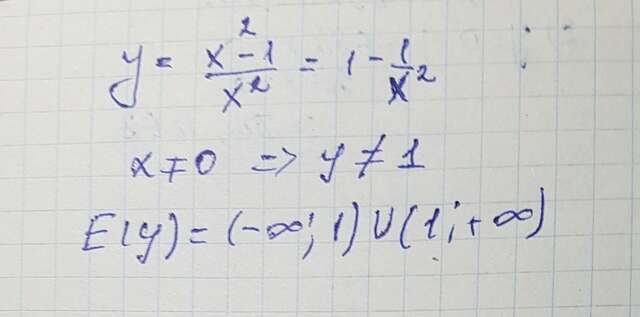 y = (x² - 1)/x² = 1 - 1/x²
x ≠ 0 => y ≠ 1
E(y) = (-∞; 1) ∪ (1; +∞)